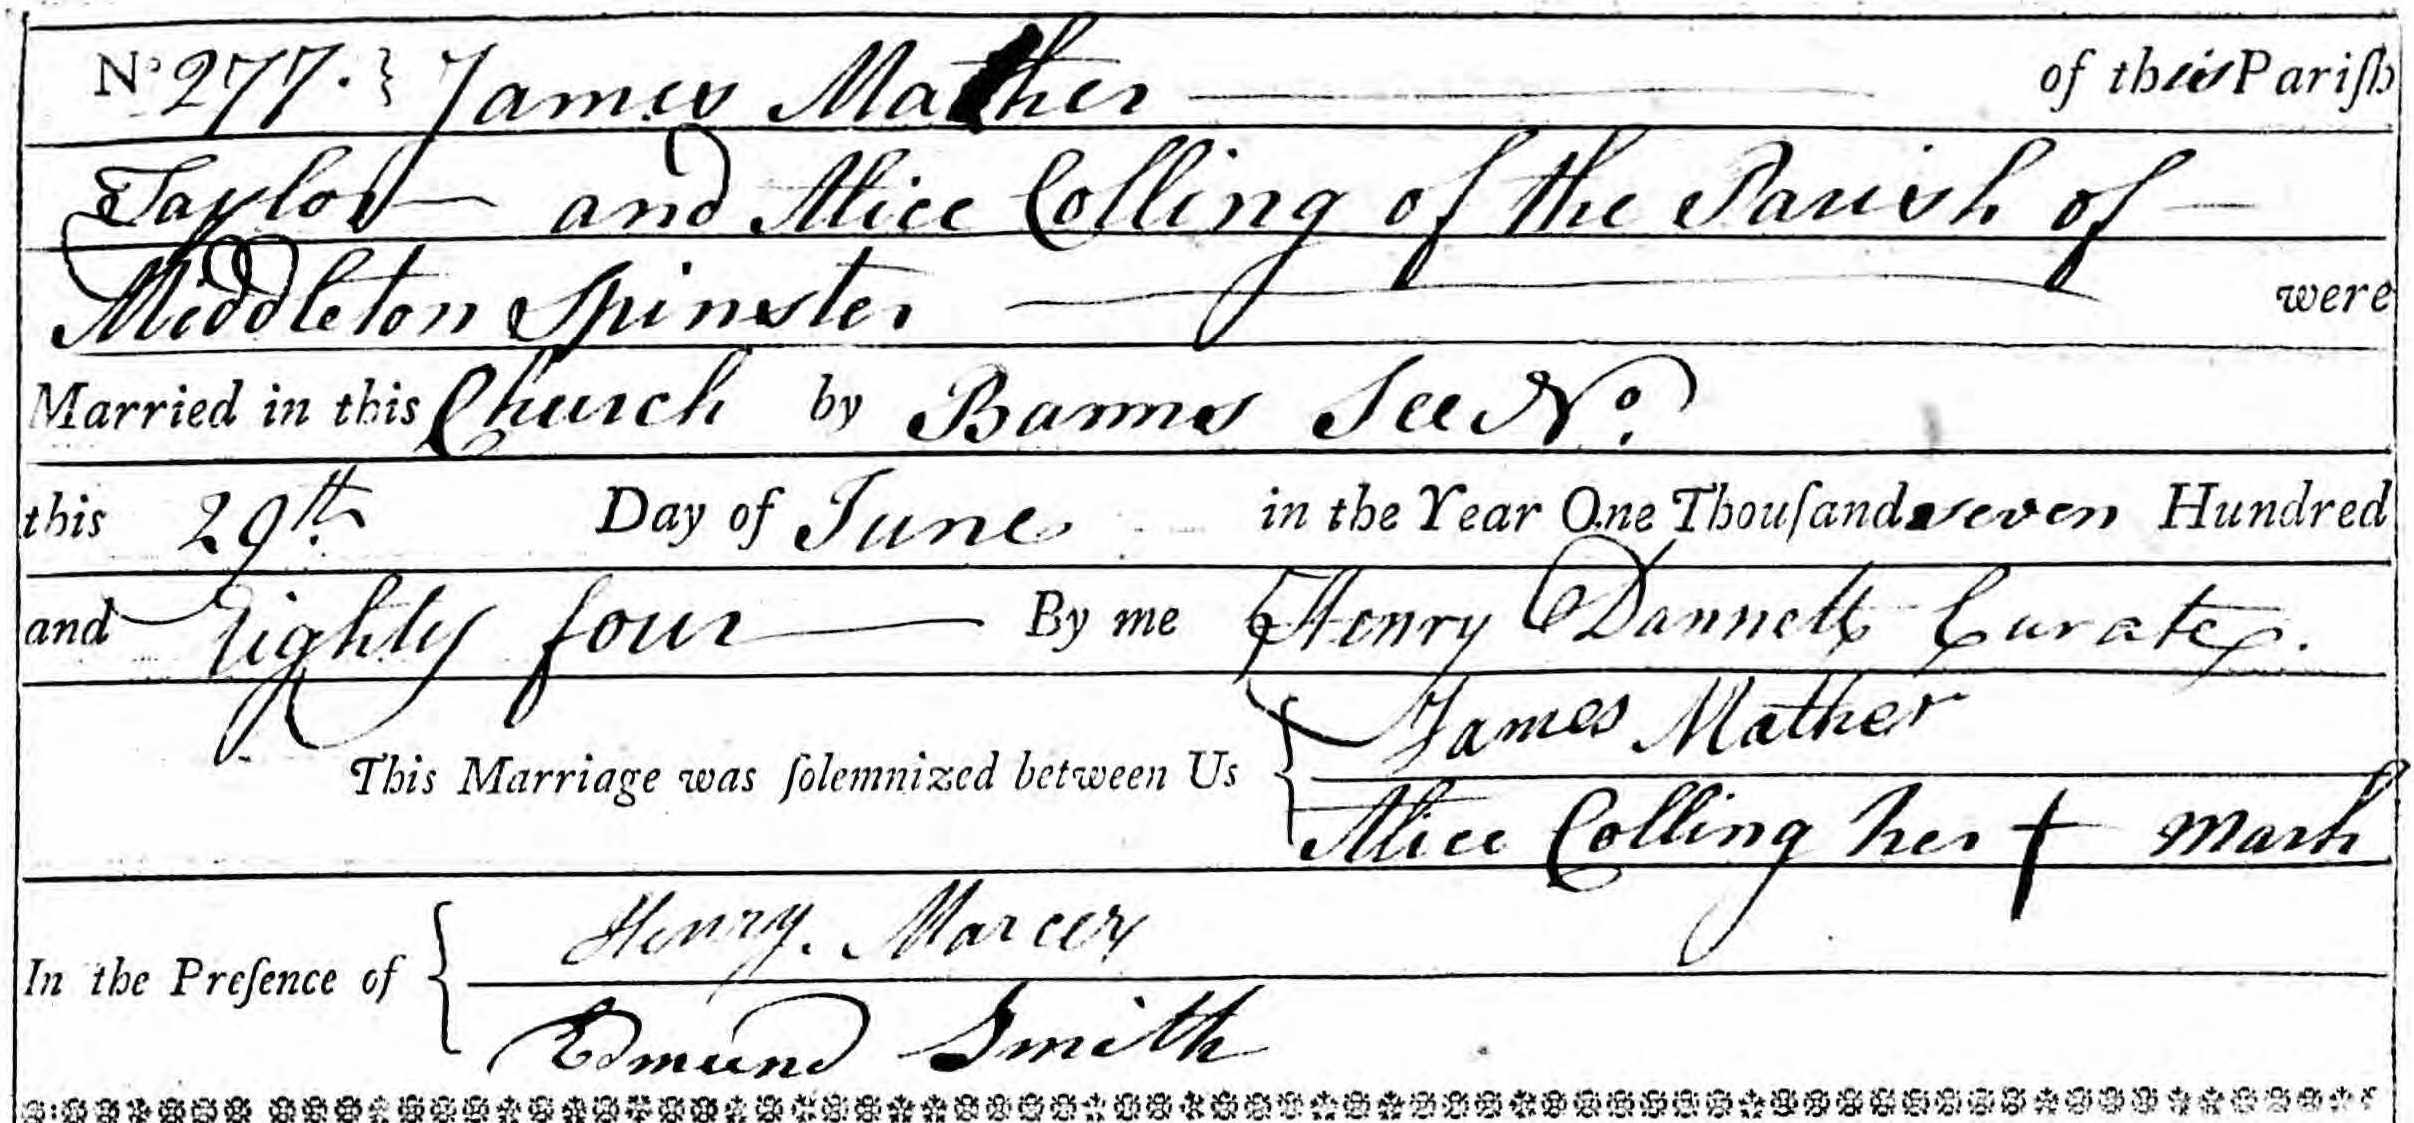 No 277. } James Mather of this Pariſh
Taylor and Alice Colling of the Parish of
Middleton Spinster were
Married in this Church by Banns See No.
this 29th. Day of June in the Year One Thouſand seven Hundred
and Eighty four By me Henry Dannett Curate.
This Marriage was ſolemnized between Us { James Mather
Alice Colling her + mark
In the Preſence of { Henry. Marcer
Edmund Smith